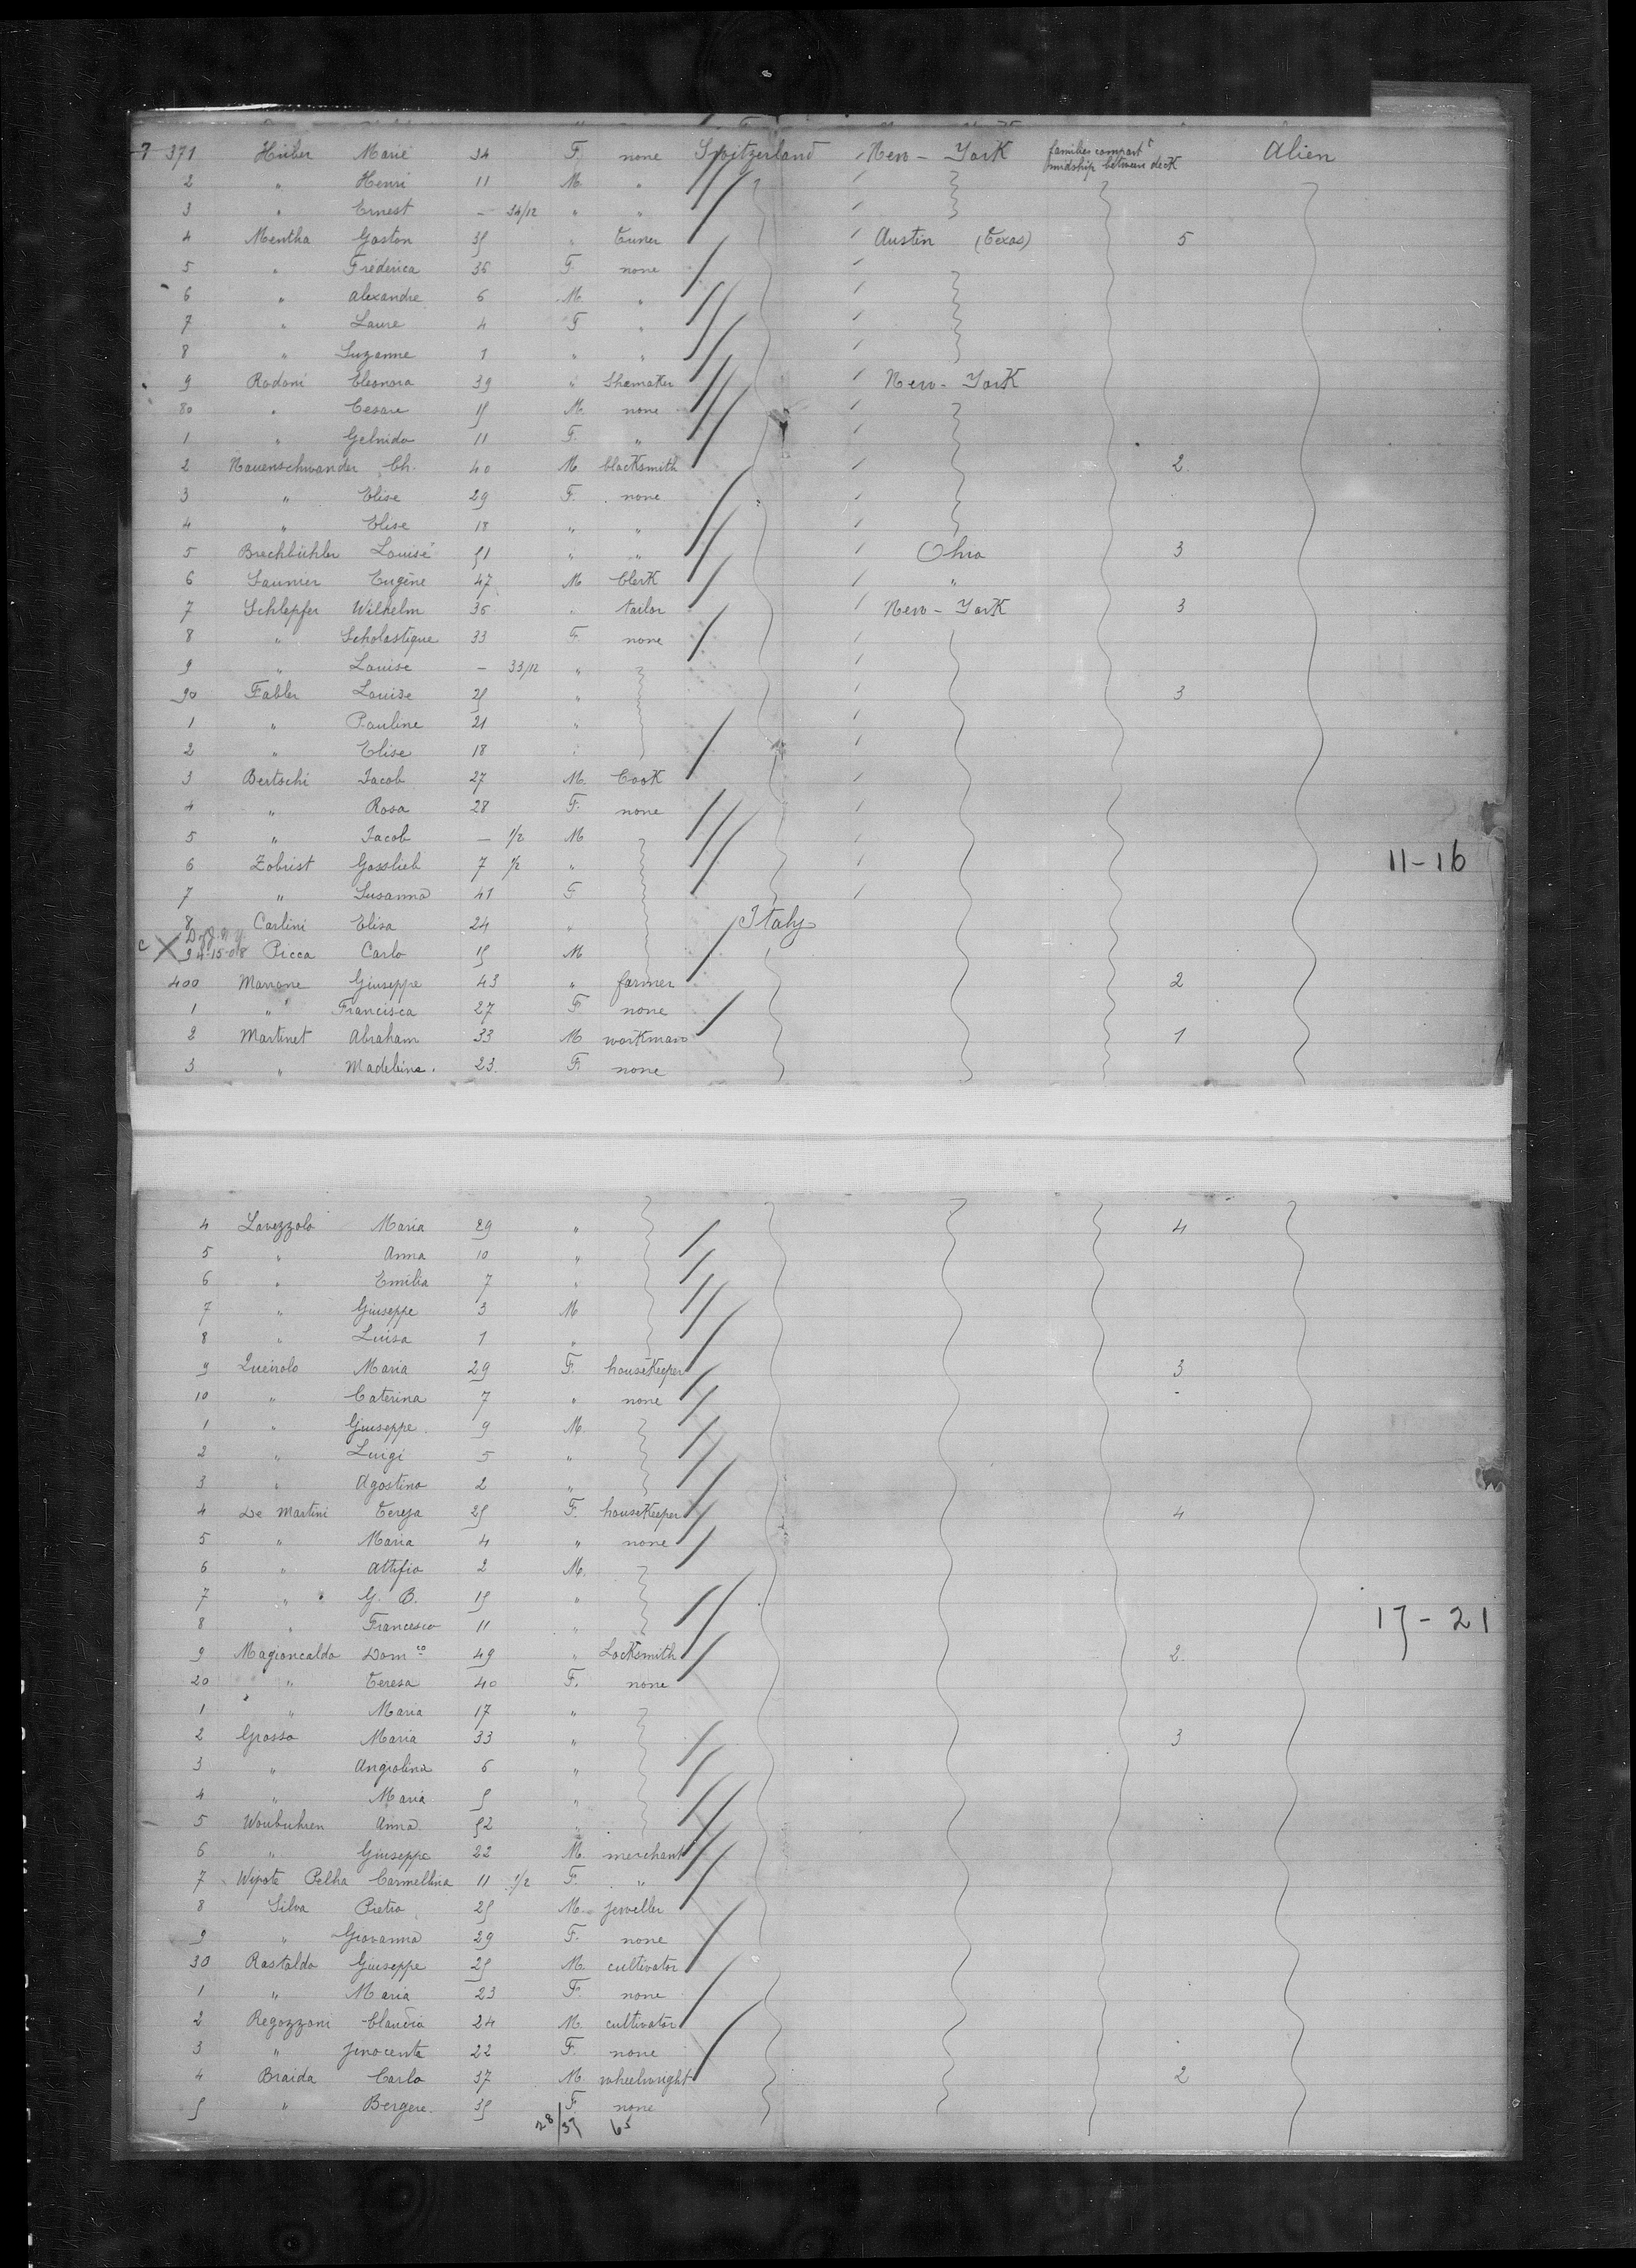 7 371 Huber Marie 34 F. none Switzerland New-York families compart^t midship between deck Alien
2 " Henri 11 M. "
3 " Ernest — 34/12 " "
4 Mentha Gaston 35 " Turner Austin (Texas) 5
5 " Fréderica 36 F. none
6 " Alexandre 6 M. "
7 " Laure 4 F "
8 " Suzanne 1 " "
9 Rodoni Eleonora 39 " Shemaker New-York
80 " Cesare 15 M. none
1 " Gelnida 11 F. "
2 Nauenschwander Ch. 40 M blacksmith 2
3 " Elise 29 F. none
4 " Elise 18 " "
5 Brechbühler Louise 51 " " Ohio 3
6 Saunier Eugène 47 M Clerk "
7 Schlepfer Wilhelm 36 " tailor New-York 3
8 " Scholastique 33 F. none
9 " Louise — 33/12 "
90 Fabler Louise 25 " 3
1 " Pauline 21 "
2 " Elise 18 "
3 Bertschi Jacob 27 M. Cook
4 " Rosa 28 F. none
5 " Jacob — 1/2 M
6 Zobrist Gosslieb 7 1/2 " 11-16
7 " Susanna 41 F
8 Carlini Elisa 24 " Italy
c X 9 4-15-08 Picca Carlo 15 M
400 Marrone Giuseppe 43 " farmer 2
1 " Francisca 27 F none
2 Martinet Abraham 33 M workman 1
3 " Madeleine. 23. F. none
4 Lavezzolo Maria 29 " 4
5 " Anna 10 "
6 " Emilia 7 "
7 " Giuseppe 3 M
8 " Luisa 1 "
9 Queirolo Maria 29 F. houseKeeper 3
10 " Caterina 7 " none -
1 " Giuseppe. 9 M.
2 " Luigi 5 "
3 " Agostino 2 "
4 De Martini Teresa 25 F. houseKeeper 4
5 " Maria 4 " none
6 " Attifio 2 M.
7 " G. B. 15 "
8 " Francesco 11 " 17-21
9 Magioncalda Dom^co 49 " Locksmith 2.
20 " Teresa 40 F. none
1 " Maria 17 "
2 Grosso Maria 33 " 3
3 " Angiolina 6 "
4 " Maria 5 "
5 Woubuhren Anna 52 "
6 " Giuseppe 22 M. merchant
7 Wipote Pelha Carmellina 11 1/2 F. "
8 Silva Pietro 25 M. jeweller
9 " Giovanna 29 F. none
30 Rastaldo Giuseppe 25 M cultivator
1 " Maria 23 F. none
2 Regozzoni Claudio 24 M. cultivator
3 " Jnnocenta 22 F. none
4 Braida Carlo 37 M. wheelwright 2
5 " Bergere. 35 F. none
28/37 65